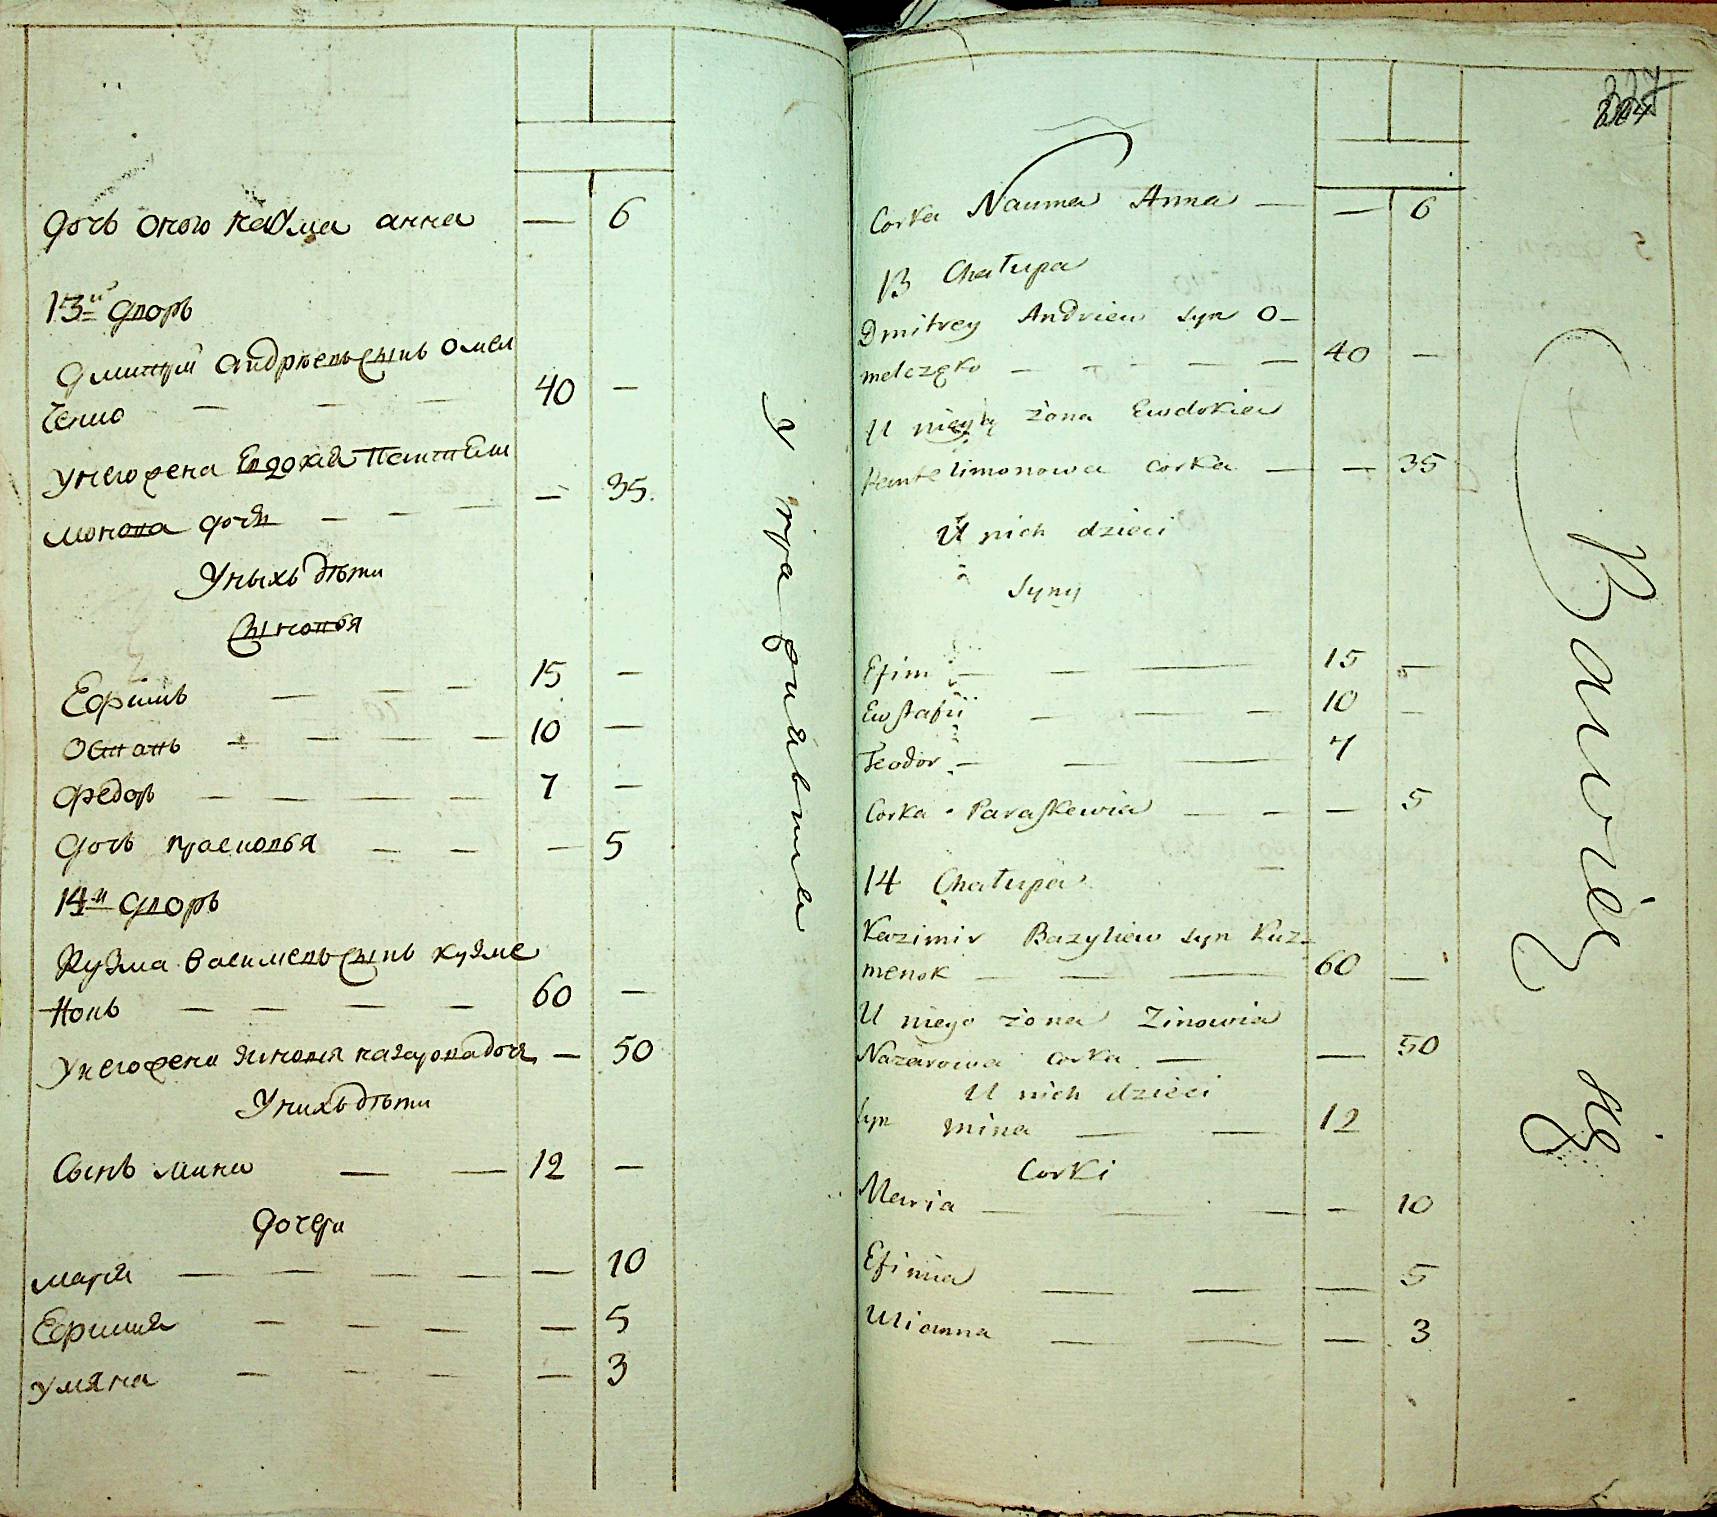 дочь оного наума анна — 6
13й дворъ
Дмитрий андрѣевъ сынъ омел
ченко — — — 40 —
Унего жена Евдокия Пантели
монова дочь — — — — 35
Унихъ дѣти
Сыновья
Ефимъ — — — 15 —
Остапъ — — — — 10 —
Федоръ — — — — 7 —
Дочь прасковья — — — 5
14й дворъ
Кузма василиевъ сынъ кузме
нокъ — — — — 60 —
Унего жена зиновия назарова дочь — 50
Унихъ дѣти
Сынъ мина — — 12 —
Дочери
мария — — — — — 10
Ефимия — — — — — 5
Уляна — — — — — 3
Corka Nauma Anna — — 6
13 Chałupa
Dmitrey Andriew syn O-
melczęko — — — — 40 —
U niego żona Ewdokia
Pantelimonowa corka — — 35
U nich dzieci
Syny
Efim — — — 15 —
Ewstafii — — — 10 —
Teodor — — — 7
Corka Paraskewia — — — 5
14 Chałupa
Kazimir Bazyliew syn Kuz-
menok — — — 60 —
U niego żona Zinowia
Nazarowa corka — — 50
U nich dzieci
syn Mina — — 12
Corki
Maria — — — — 10
Efimia — — — 5
Ulianna — — — 3